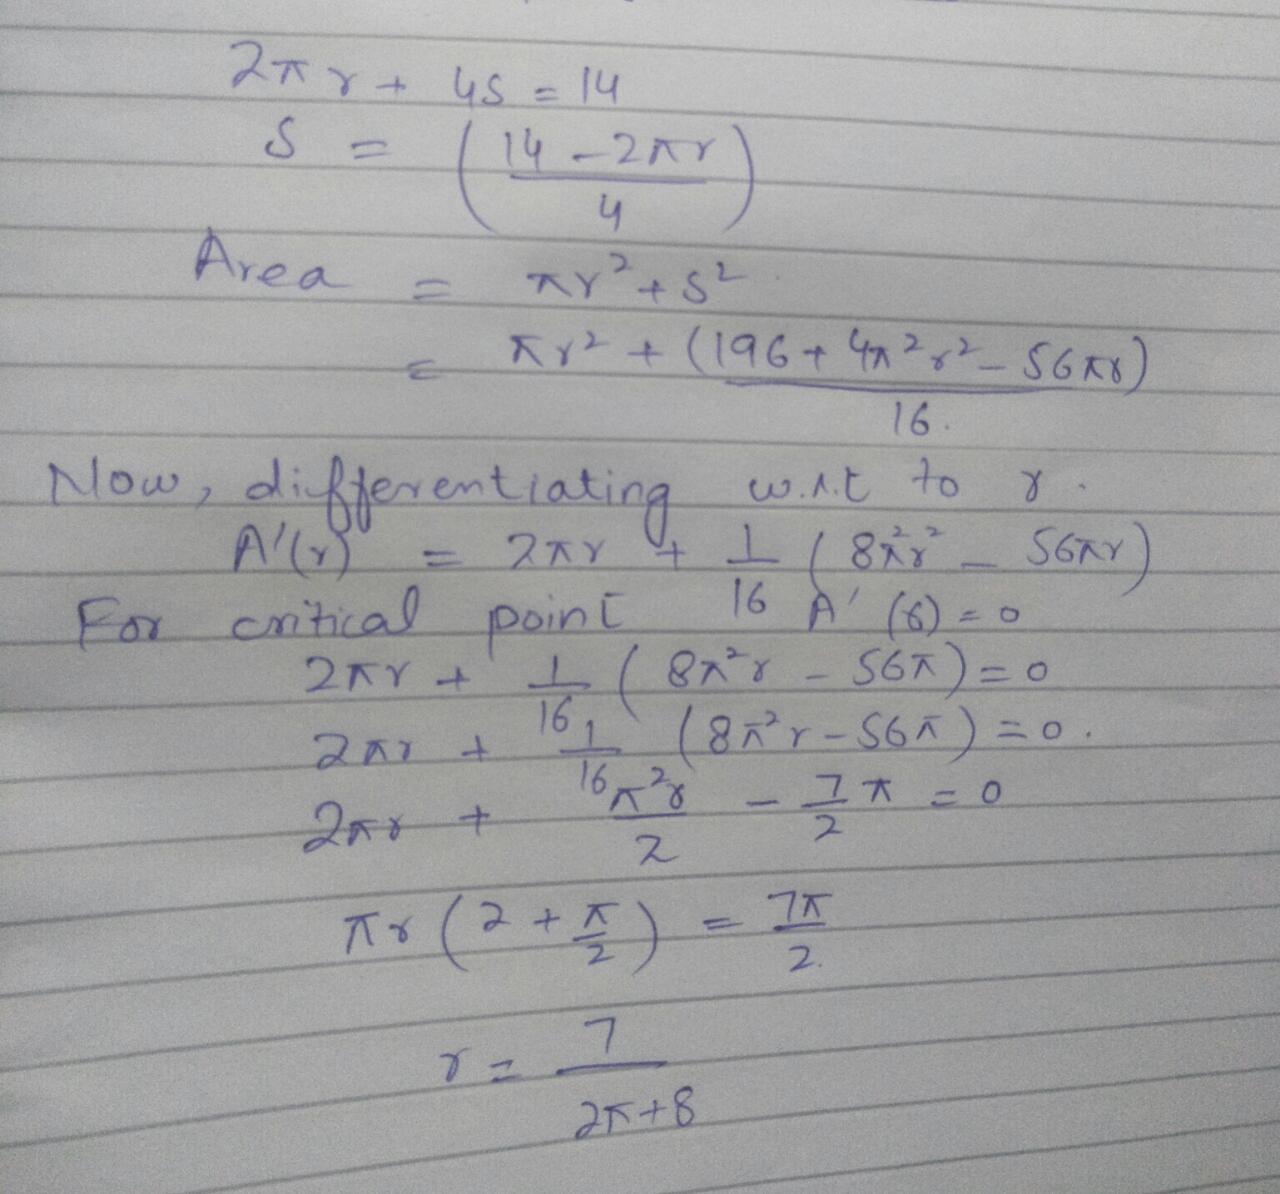 2πr + 4S = 14
S = (14 - 2πr / 4)
Area = πr² + S²
= πr² + (196 + 4π²r² - 56πr) / 16.
Now, differentiating w.r.t to r.
A'(r) = 2πr + 1/16 (8π²r² - 56πr)
For critical point A'(r) = 0
2πr + 1/16 (8π²r - 56π) = 0
2πr + 1/16 (8π²r - 56π) = 0.
2πr + π²r/2 - 7/2 π = 0
πr (2 + π/2) = 7π/2.
r = 7 / 2π+8